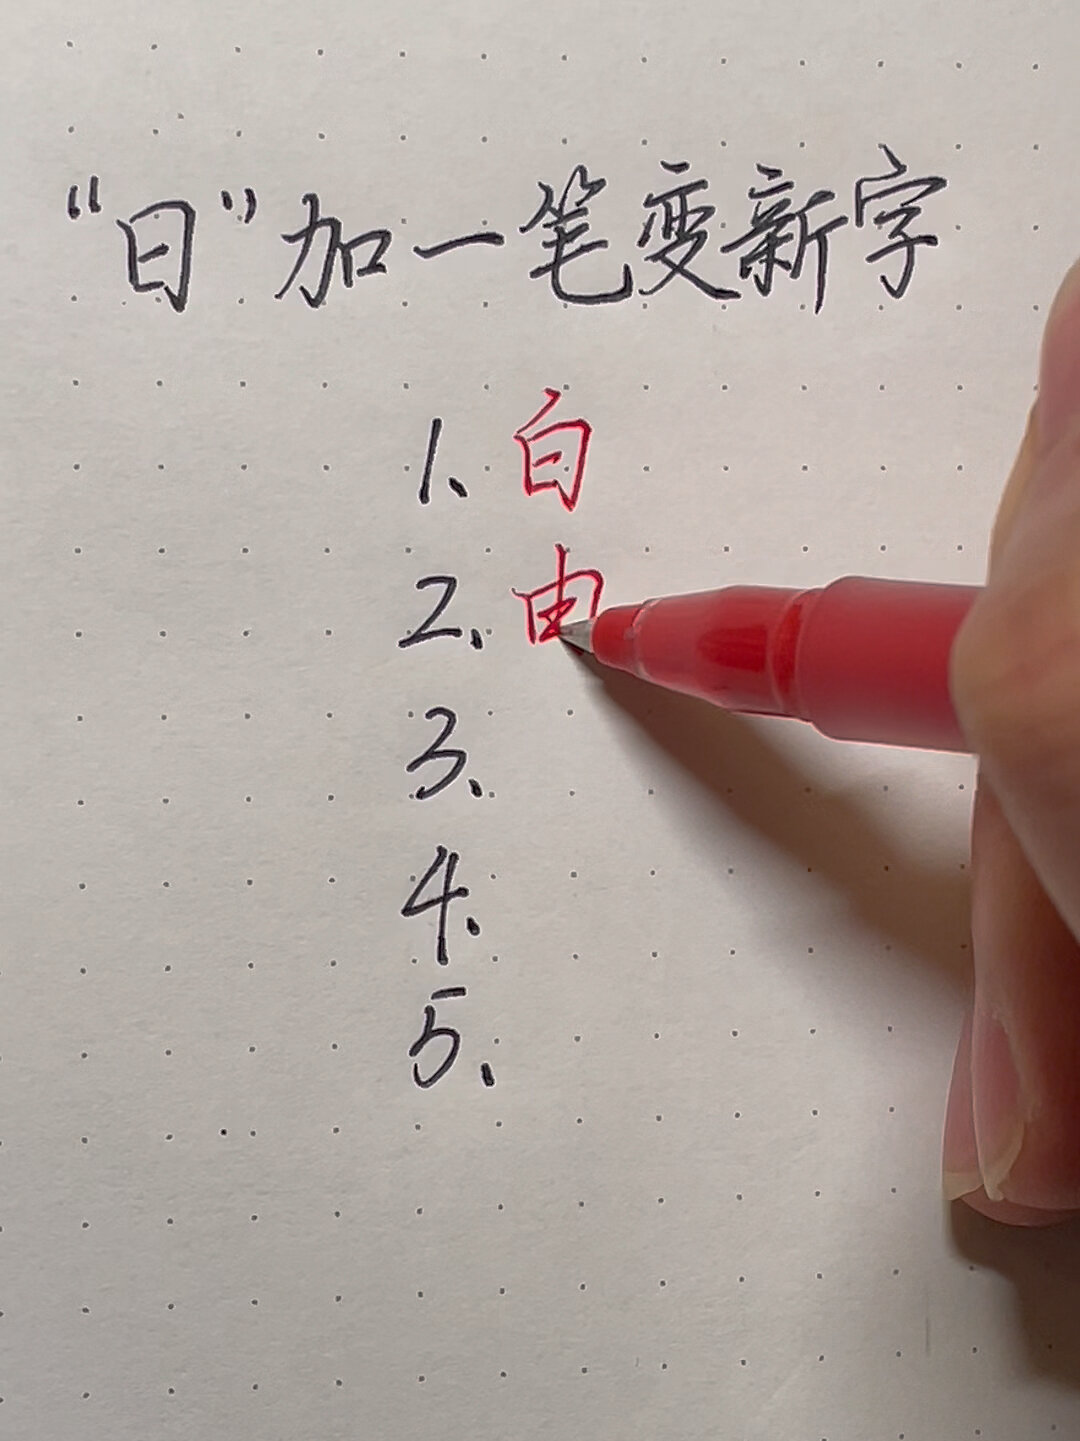 “日”加一笔变新字
1、白
2、由
3、
4、
5、